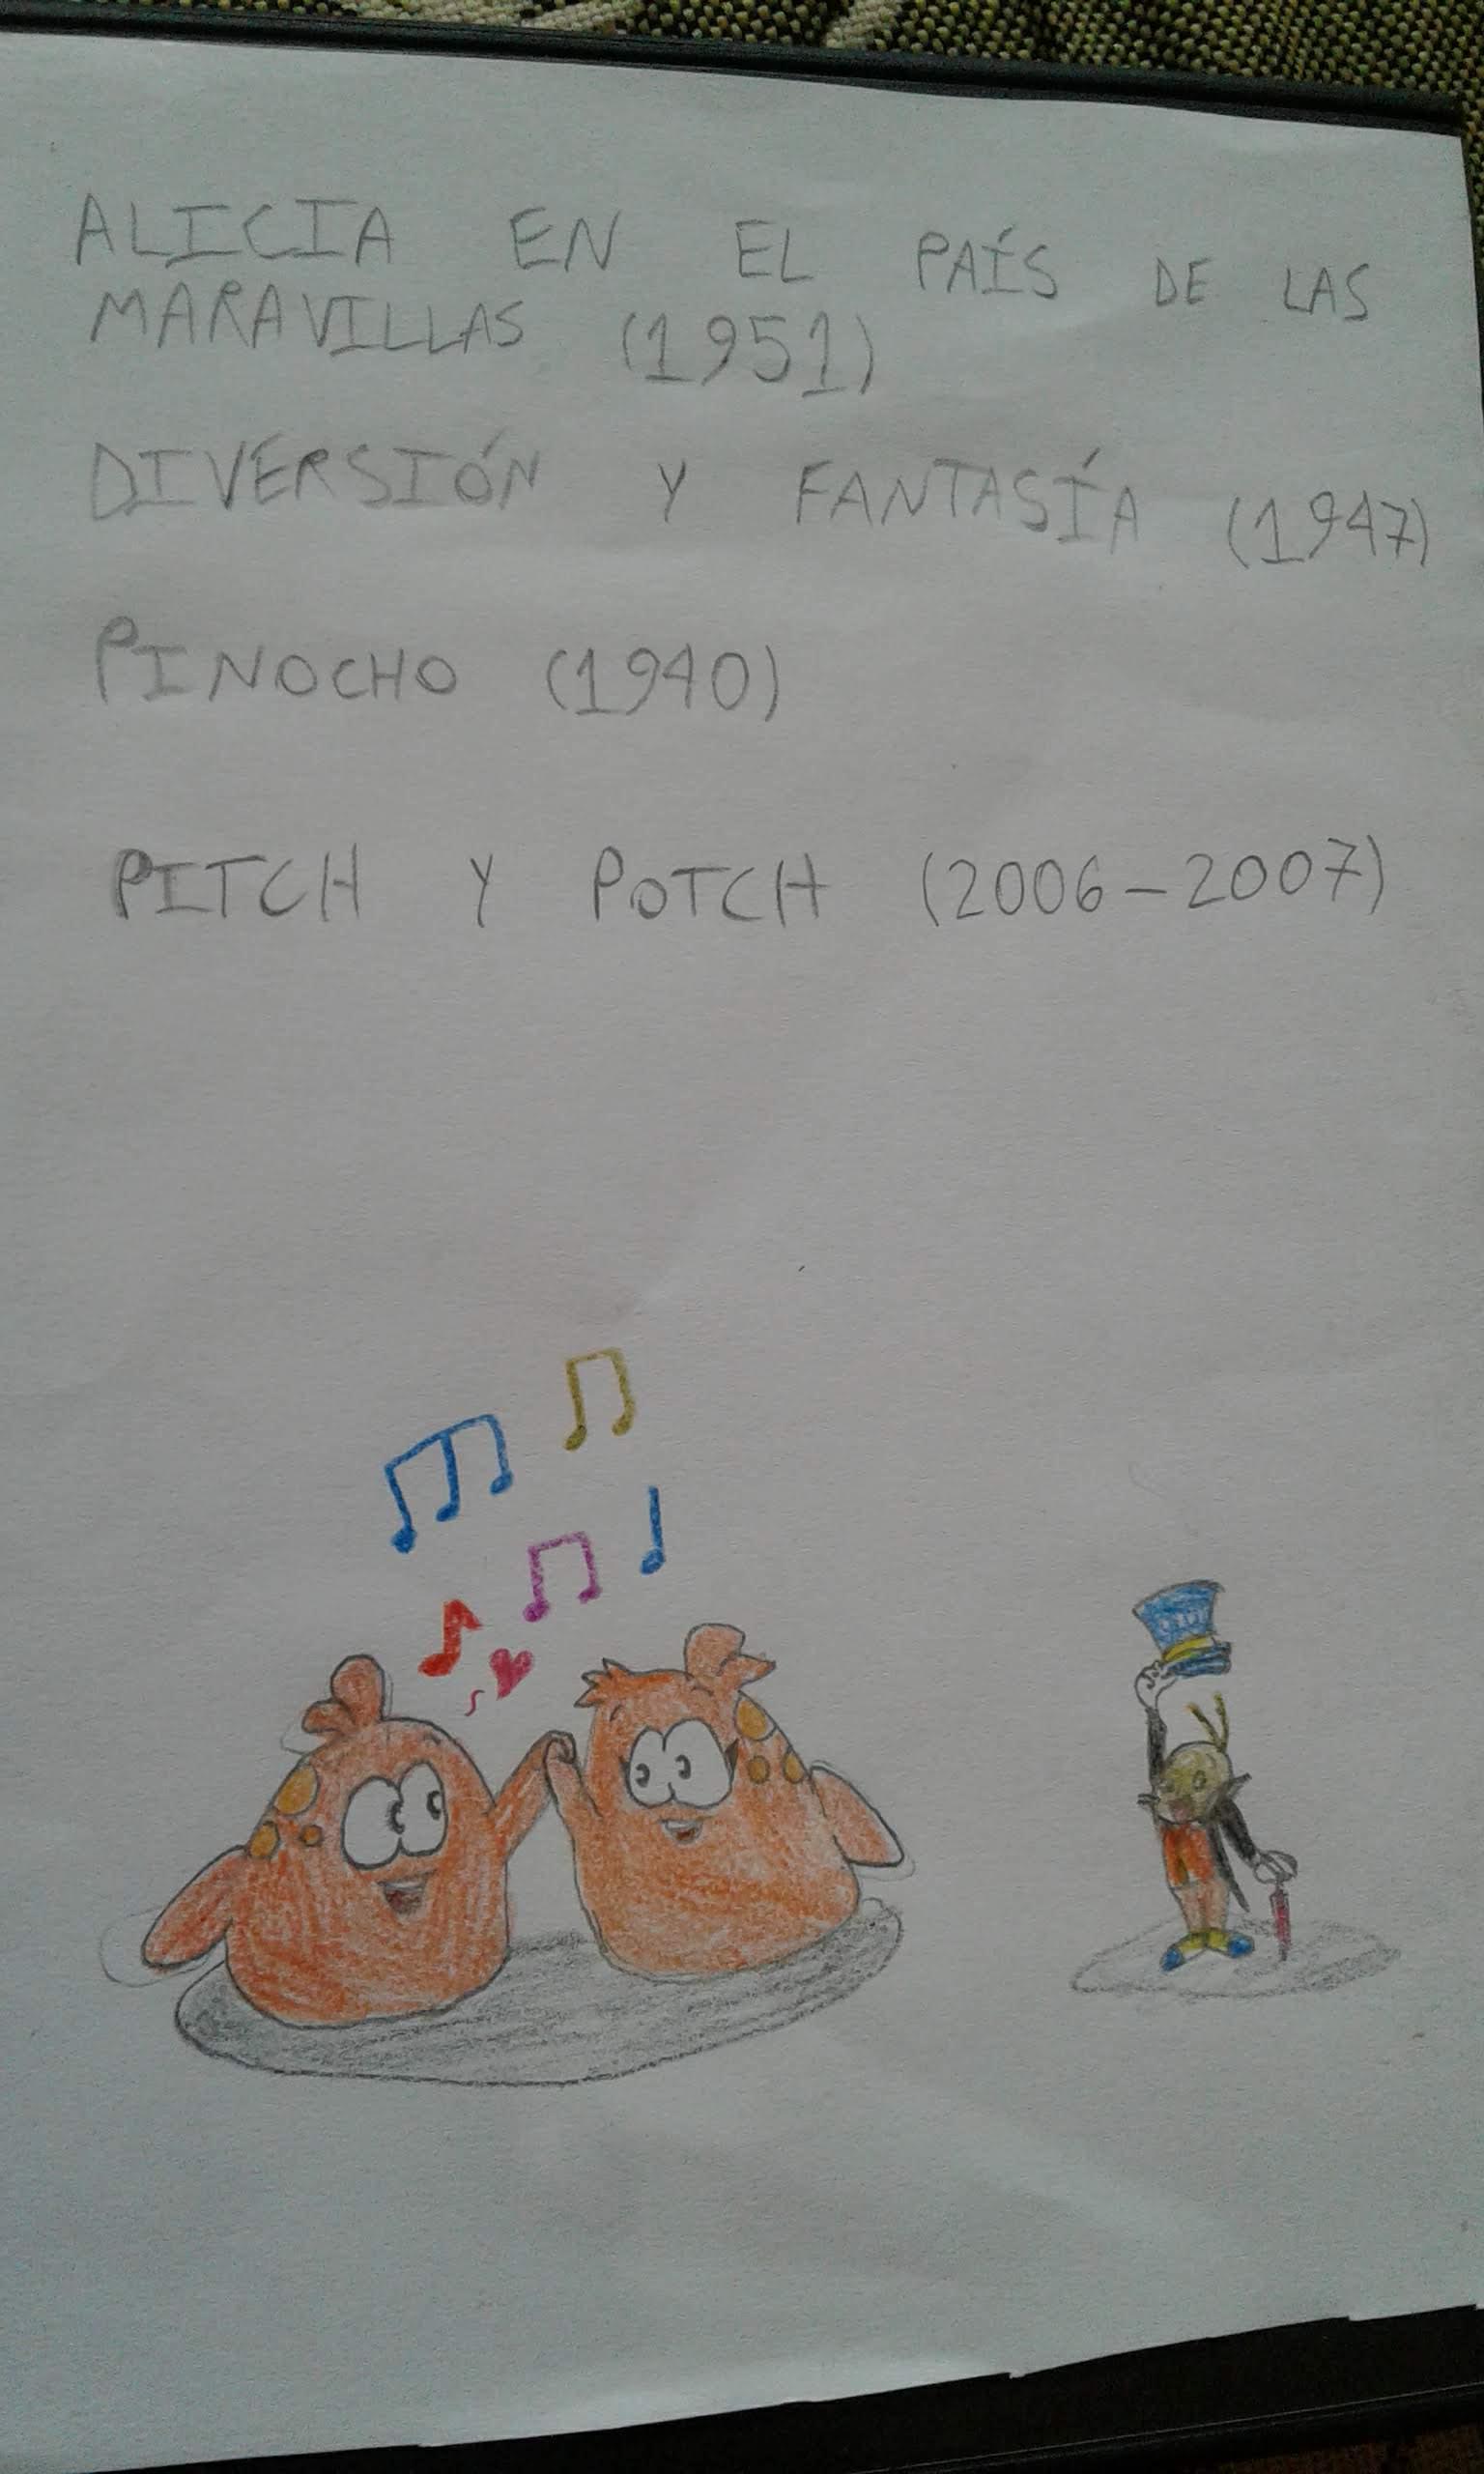 ALICIA EN EL PAÍS DE LAS
MARAVILLAS (1951)
DIVERSIÓN Y FANTASÍA (1947)
PINOCHO (1940)
PITCH Y POTCH (2006-2007)